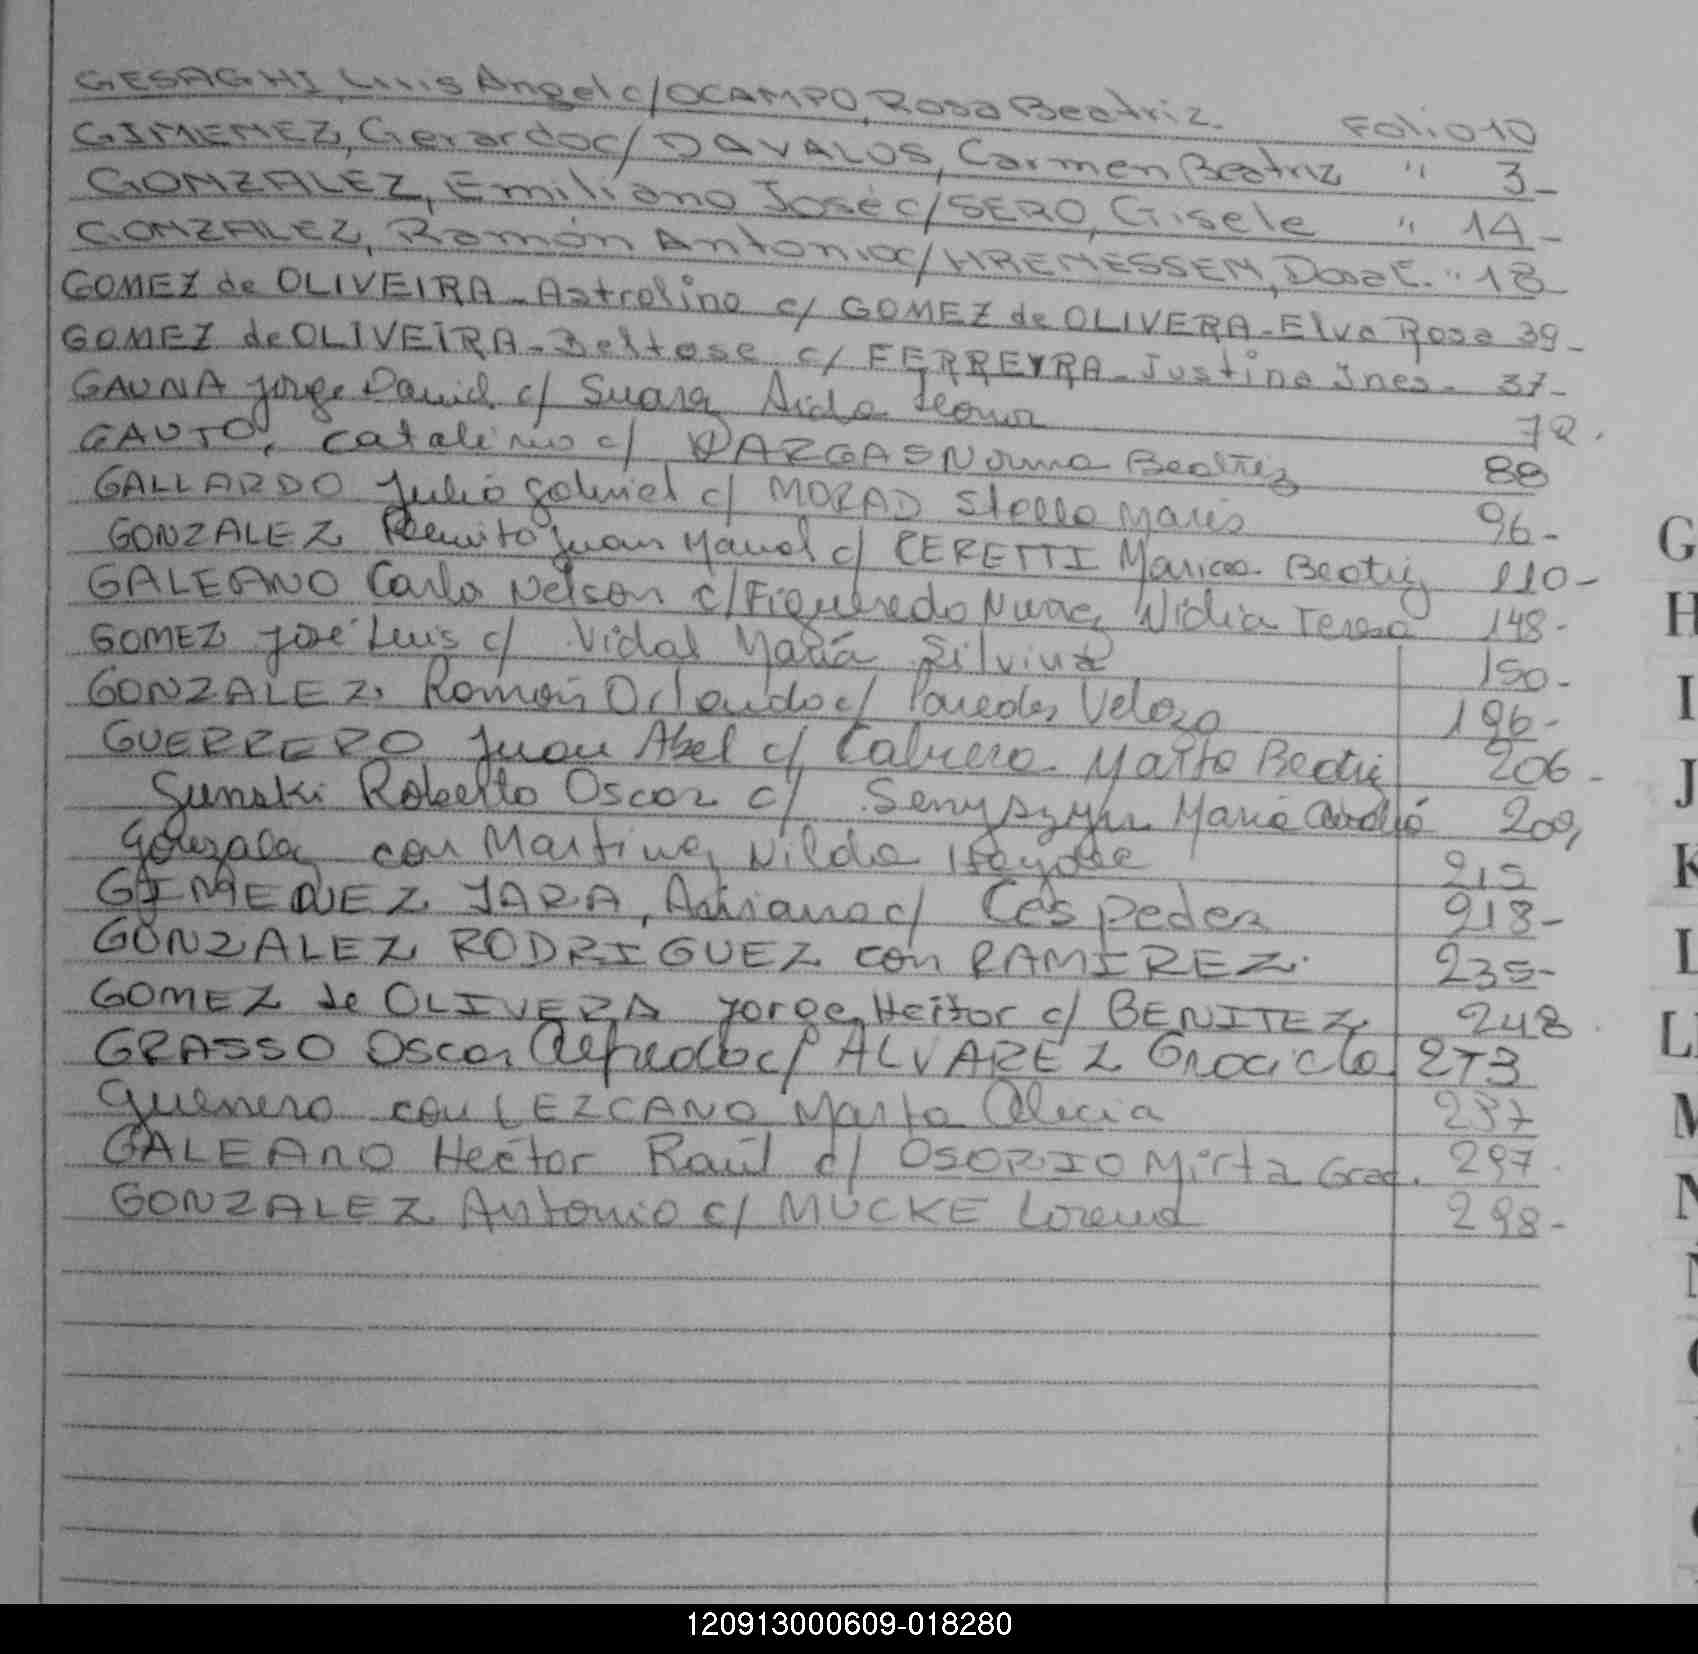 GESAGHI, Luis Angel c/ OCAMPO, Rosa Beatriz. Folio 10
GIMENEZ, Gerardo c/ DAVALOS, Carmen Beatriz " 3-
GONZALEZ, Emiliano José c/ SERO, Gisele " 14-
GONZALEZ, Ramón Antonio c/ HRENESSEN, " 18
GOMEZ de OLIVEIRA - Astrolino c/ GOMEZ de OLIVERA - Elva Rosa 39-
GOMEZ de OLIVEIRA - c/ FERREYRA - Justina Ines - 37-
GAUNA Jorge Daniel c/ Suarez Aida 72.
GAUTO, Catalino c/ VARGAS Norma Beatriz 88
GALLARDO Julio Gabriel c/ MORAD Stella Maris 96-
GONZALEZ Juan Manuel c/ CERETTI Beatriz 110-
GALEANO Carlos Nelson c/ Figueredo Nunez Nidia Teresa 148-
GOMEZ José Luis c/ Vidal María Silvina 150-
GONZALEZ, Román Orlando c/ Paredes Velozo 196-
GUERRERO Juan Abel c/ Cabrera Marta Beatriz 206-
Roberto Oscar c/ Senyszyn Maria 209,
Gonzalez con Martinez Nilda 215
GIMENEZ JARA, Adriano c/ Cespedez 218-
GONZALEZ RODRIGUEZ con RAMIREZ. 235-
GOMEZ de OLIVERA Jorge Heitor c/ BENITEZ 248.
GRASSO Oscar Alfredo c/ ALVAREZ Graciela 273
Guerrero con LEZCANO Marta Alicia
GALEANO Hector Raúl c/ OSORIO Mirta Grac. 297.
GONZALEZ Antonio c/ MUCKE Lorena 298-
G
H
I
J
K
L
LL
M
N
120913000609-018280